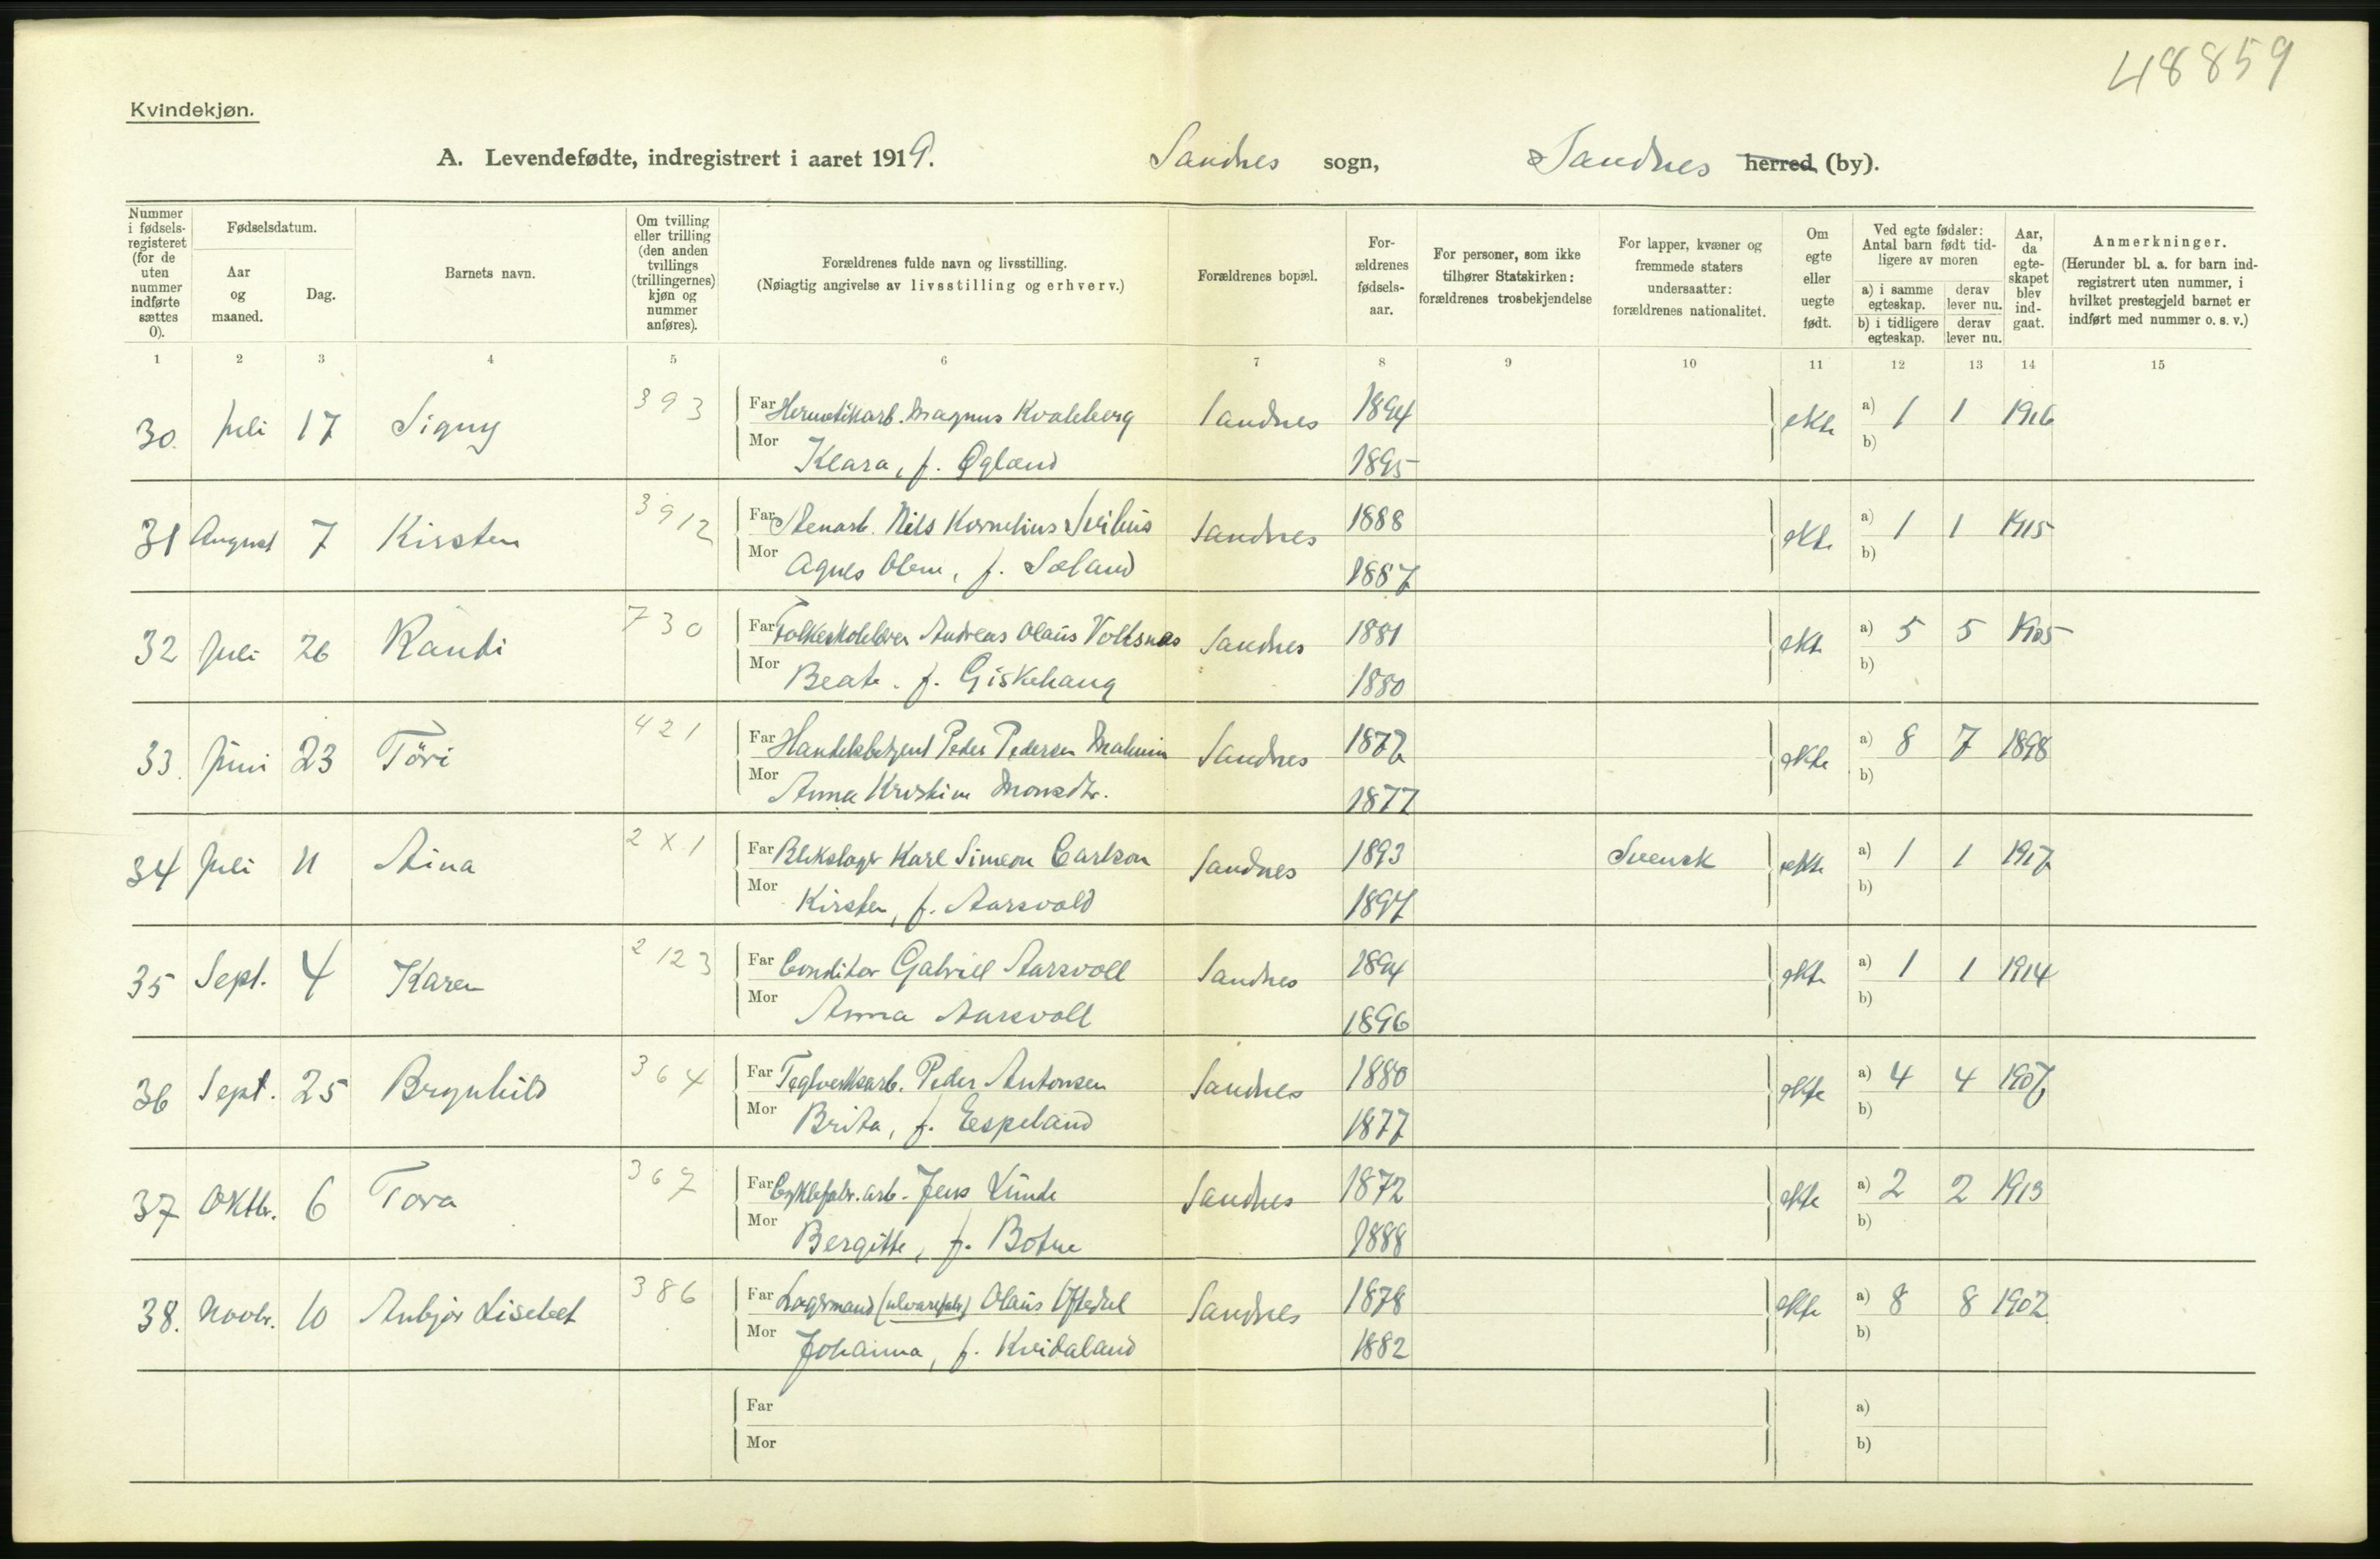 48859
Kvindekjøn.
A. Levendefødte, indregistrert i aaret 1919. Sandnes sogn, Sandnes herred (by).
Nummer i fødsels-registeret (for de uten nummer indførte sættes 0).
Fødselsdatum.
Aar og maaned.
Dag.
Barnets navn.
Om tvilling eller trilling (den anden tvillings (trillingernes) kjøn og nummer anføres).
Forældrenes fulde navn og livsstilling.
(Nøiagtig angivelse av livsstilling og erhverv.)
Forældrenes bopæl.
For-ældrenes fødsels-aar.
For personer, som ikke tilhører Statskirken: forældrenes trosbekjendelse
For lapper, kvæner og fremmede staters undersaatter: forældrenes nationalitet.
Om egte eller uegte født.
Ved egte fødsler: Antal barn født tid-ligere av moren
a) i samme egteskap. derav lever nu.
b) i tidligere egteskap. derav lever nu.
Aar, da egte-skapet blev ind-gaat.
Anmerkninger.
(Herunder bl. a. for barn ind-registrert uten nummer, i hvilket prestegjeld barnet er indført med nummer o. s. v.)
1 2 3 4 5 6 7 8 9 10 11 12 13 14 15
30. Juli 17 Signy 393 Far Hermetikarb. Magnus Kvaleberg Sandnes 1894 ekte a) 1 1 1916
Mor Klara, f. Øgland 1895 b)
31 August 7 Kirsten 3912 Far Stenarb. Nils Kornelius Svihus Sandnes 1888 ekte a) 1 1 1915
Mor Agnes Olene, f. Sæland 1887 b)
32 Juli 26 Randi 730 Far Andreas Olaus Volksnes Sandnes 1881 ekte a) 5 5 1905
Mor Beate, f. Giskehaug 1880 b)
33. Juni 23 Tóri 421 Far Handelsbetjent Peder Pedersen Malmin Sandnes 1872 ekte a) 8 7 1898
Mor Anna Kristine Monsdtr. 1877 b)
34 Juli 11 Aina 2X1 Far Blikslager Karl Simeon Carlson Sandnes 1893 Svensk ekte a) 1 1 1917
Mor Kirsten, f. Aarsvold 1897 b)
35 Sept. 4 Karen 2123 Far Conditor Gabriel Aarsvoll Sandnes 1894 ekte a) 1 1 1914
Mor Anna Aarsvoll 1896 b)
36 Sept. 25 Brynhild 364 Far Teglverksarb. Peder Antonsen Sandnes 1880 ekte a) 4 4 1907
Mor Brita, f. Espeland 1877 b)
37 Oktbr. 6 Tora 367 Far Cyklefabr. arb. Jens Lunde Sandnes 1872 ekte a) 2 2 1913
Mor Bergitte, f. Botne 1888 b)
38. Novbr. 10 Anbjør Lisebet 386 Far Lagermand (ulvarefabr) Olaus Oftedal Sandnes 1878 ekte a) 8 8 1902
Mor Johanna, f. Kvidaland 1882 b)
Far a)
Mor b)